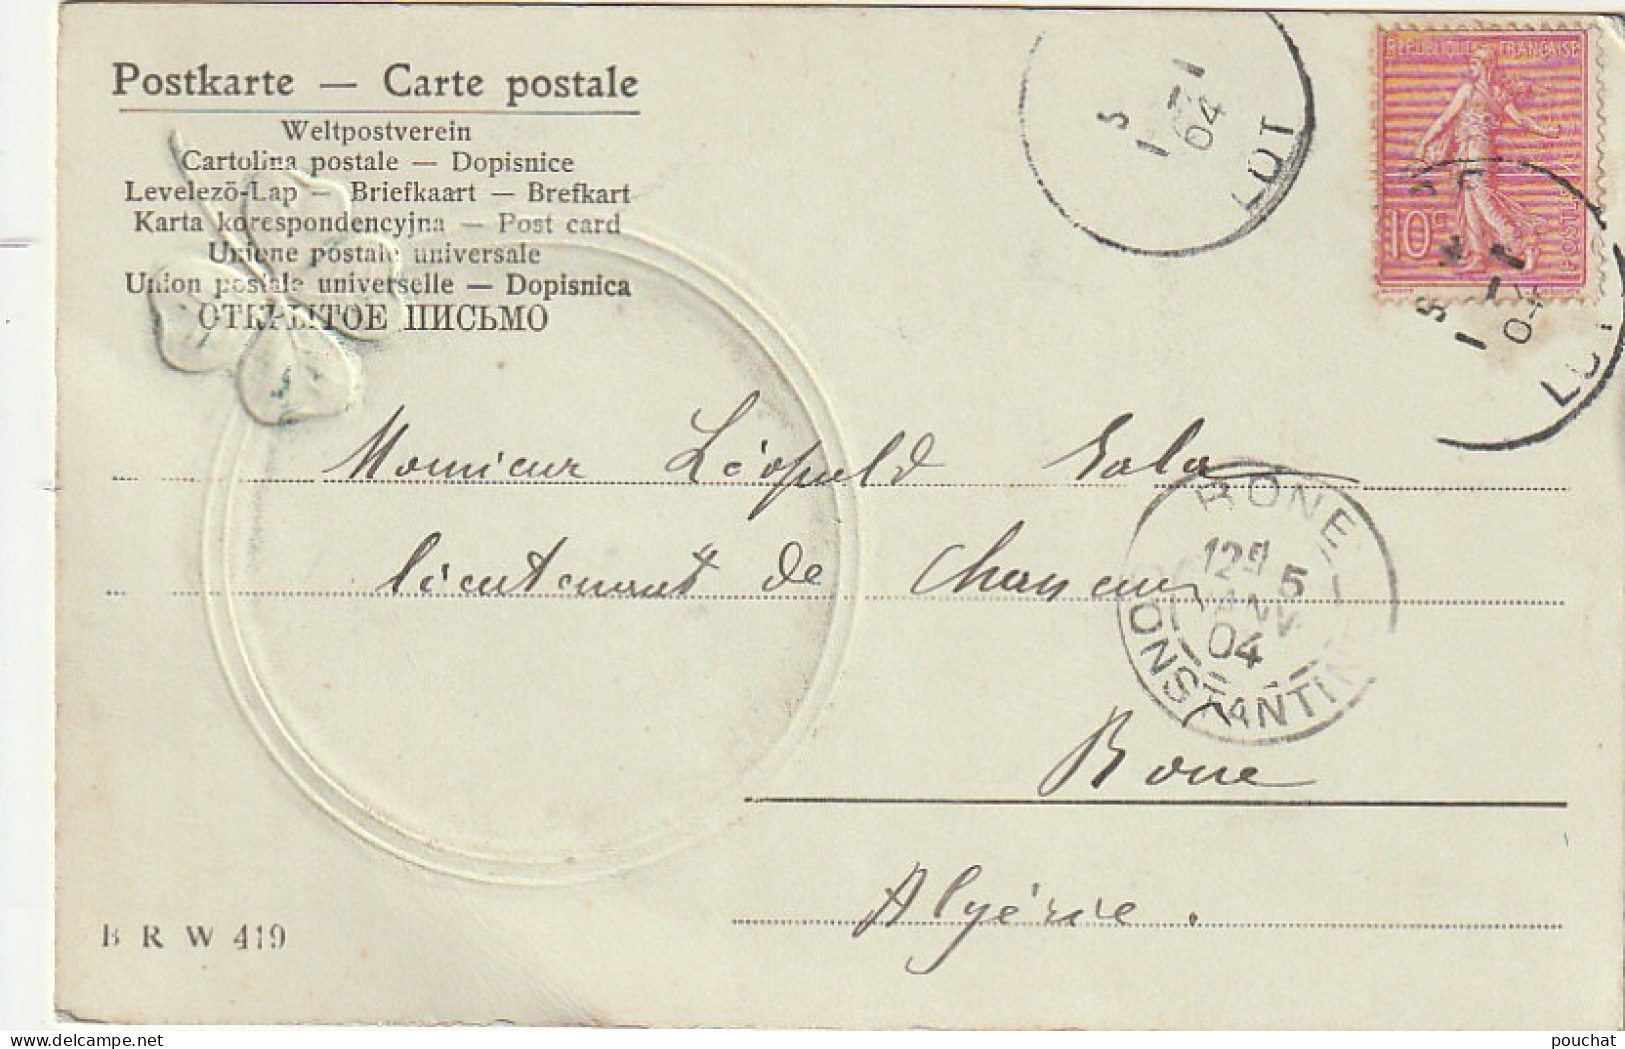 Postkarte — Carte postale
Weltpostverein
Cartolina postale — Dopisnice
Levelező-Lap — Briefkaart — Brefkort
Karta korespondencyjna — Post card
Unione postale universale
Union postale universelle — Dopisnica
ОТКРЫТОЕ ПИСЬМО
REPUBLIQUE FRANÇAISE
10c
POSTES
5
1
04
LOT
5
1
04
LOT
Monsieur Léopold Sala
lieutenant de Chasseurs
Bone
Algérie.
BONE
12
5
JANV
04
CONSTANTINE
B R W 419
pouchat